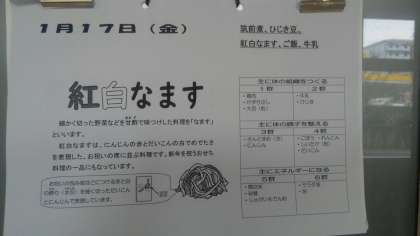 1月17日（金）
筑前煮、ひじき豆、
紅白なます、ご飯、牛乳
紅白なます
細かく切った野菜などを甘酢で味つけした料理を「なます」
といいます。
紅白なますは、にんじんの赤とだいこんの白でめでたさ
を表現した、お祝いの席に並ぶ料理です。新年を祝うおせち
料理の一品にもなっています。
お祝いの包み紙などにつける赤と白
にんじんで表現しています。
主に体の組織をつくる
1群 2群
・鶏肉 ・牛乳
・大豆 ・ひじき
主に体の調子を整える
3群 4群
・にんじん ・ごぼう ・れんこん
・だいこん
主にエネルギーになる
5群 6群
・精白米
・砂糖